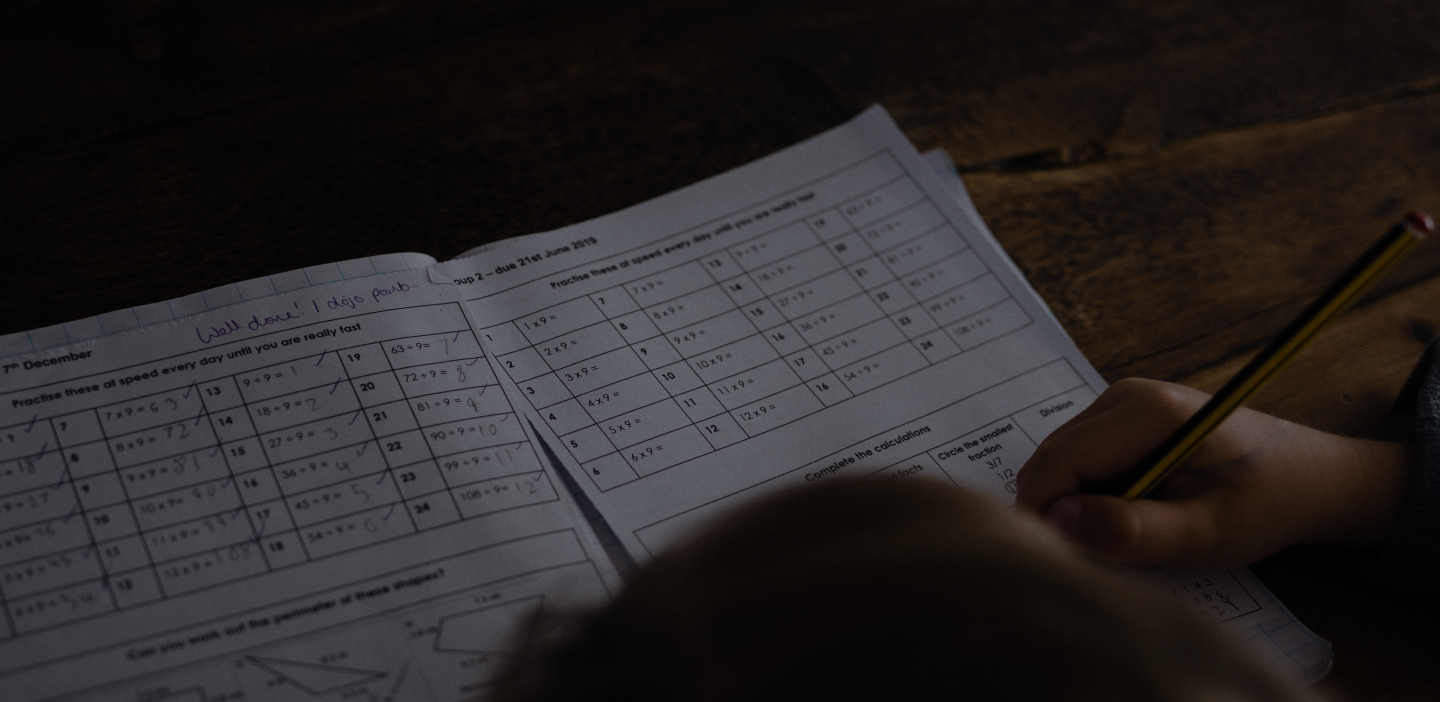 Well done! 1 dojo point.
7th December
Practise these at speed every day until you are really fast
7 7 x 9 = 63 13 9 ÷ 9 = 1 19 63 ÷ 9 = 7
8 8 x 9 = 72 14 18 ÷ 9 = 2 20 72 ÷ 9 = 8
9 9 x 9 = 81 15 27 ÷ 9 = 3 21 81 ÷ 9 = 9
10 10 x 9 = 90 16 36 ÷ 9 = 4 22 90 ÷ 9 = 10
11 11 x 9 = 99 17 45 ÷ 9 = 5 23 99 ÷ 9 = 11
12 12 x 9 = 108 18 54 ÷ 9 = 6 24 108 ÷ 9 = 12
Can you work out the perimeter of these shapes?
oup 2 – due 21st June 2019
Practise these at speed every day until you are really fast
1 1 x 9 = 7 7 x 9 = 13 9 ÷ 9 = 19 63 ÷ 9 =
2 2 x 9 = 8 8 x 9 = 14 18 ÷ 9 = 20 72 ÷ 9 =
3 3 x 9 = 9 9 x 9 = 15 27 ÷ 9 = 21 81 ÷ 9 =
4 4 x 9 = 10 10 x 9 = 16 36 ÷ 9 = 22 90 ÷ 9 =
5 5 x 9 = 11 11 x 9 = 17 45 ÷ 9 = 23 99 ÷ 9 =
6 6 x 9 = 12 12 x 9 = 18 54 ÷ 9 = 24 108 ÷ 9 =
Complete the calculations
facts
Circle the smallest
fraction
3/7
1/2
Division